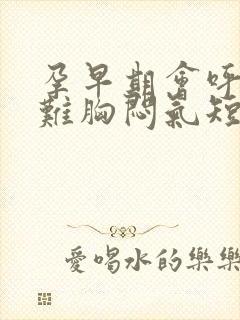 孕早期會呼
難胸悶氣短
愛喝水的樂樂